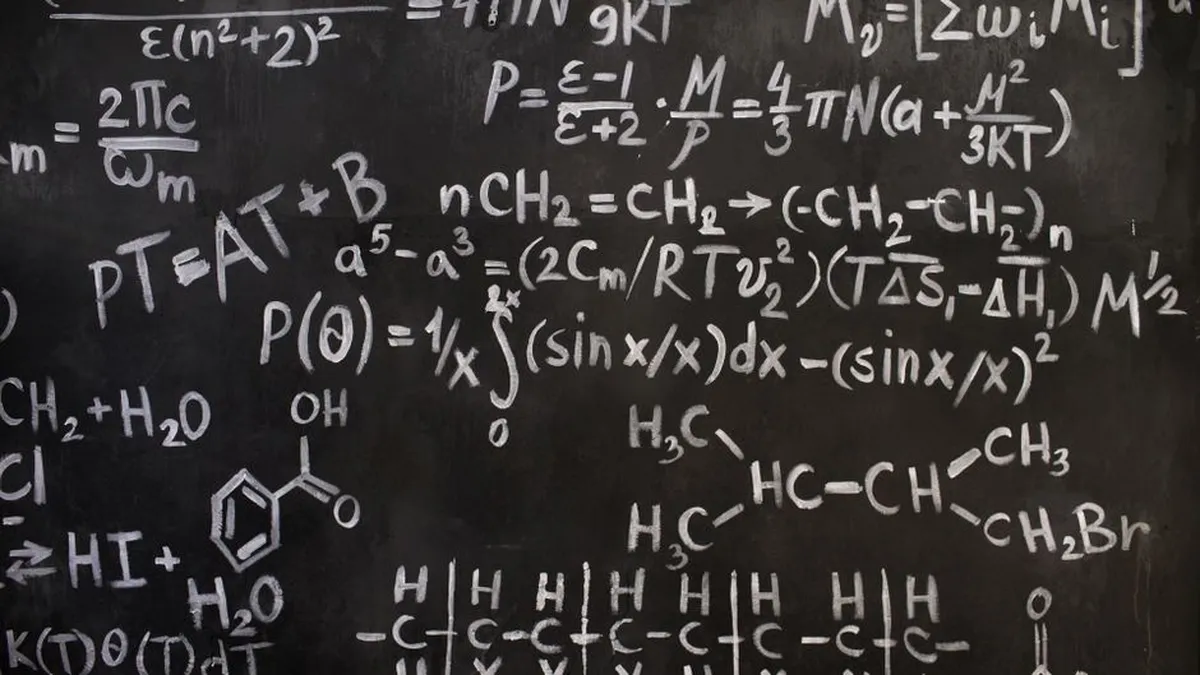 ε(n²+2)²
= 4πN
9KT
Mᵥ=[Σωᵢ Mᵢ]
m = 2πc / ωm
P = ε-1 / ε+2 · M / P = 4/3 πN(a + M² / 3KT)
PT=AT+B
nCH₂=CH₂→(-CH₂-CH₂-)n
a⁵-a³=(2Cm/RTv₂²)(TΔS₁-ΔH₁) M½
P(θ) = 1/x ∫ (sin x/x)dx -(sinx/x)²
2x
0
)
CH₂+H₂O
OH
O
Cl
-
⇄ HI +
H₂O
H₃C
H₃C
HC-CH
CH₃
CH₂Br
H | H H | H H | H H | H
-C-C-C-C-C-C-C-C-
K(T)θ(T)dT
O